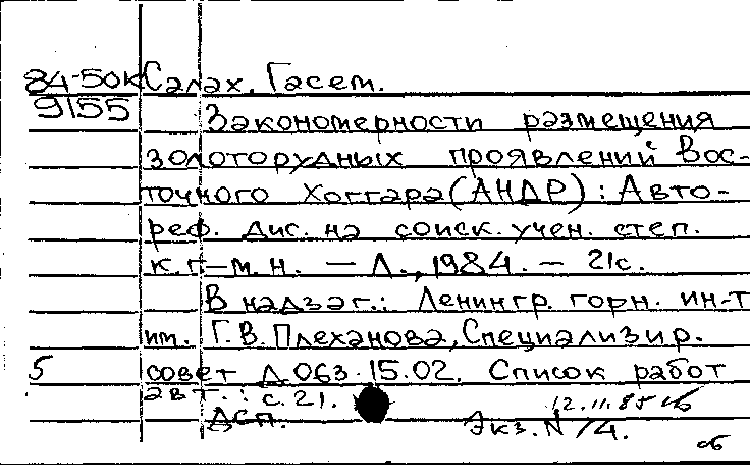 84-50к Салах, Гасем.
9155 Закономерности размещения
золоторудных проявлений Вос-
точного Хоггара (АНДР) : Авто-
реф. дис. на соиск. учен. степ.
к. г.-м. н. — Л., 1984. — 21с.
В надзаг.: Ленингр. горн. ин-т
им. Г. В. Плеханова, Специализир.
5 совет Д.063.15.02. Список работ
авт.: с. 21.
12.11.85
ДСП. Экз. N 74.